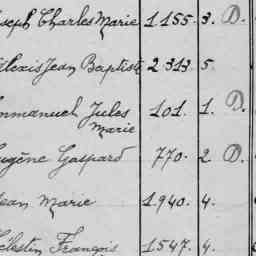 Joseph Charles Marie 1.155. 3. D.
Alexis Jean Baptiste 2.313. 5.
Emmanuel Jules 101. 1. D.
Marie
Eugène Gaspard 770. 2. D.
Jean Marie 1.940. 4.
Célestin François 1547. 4.